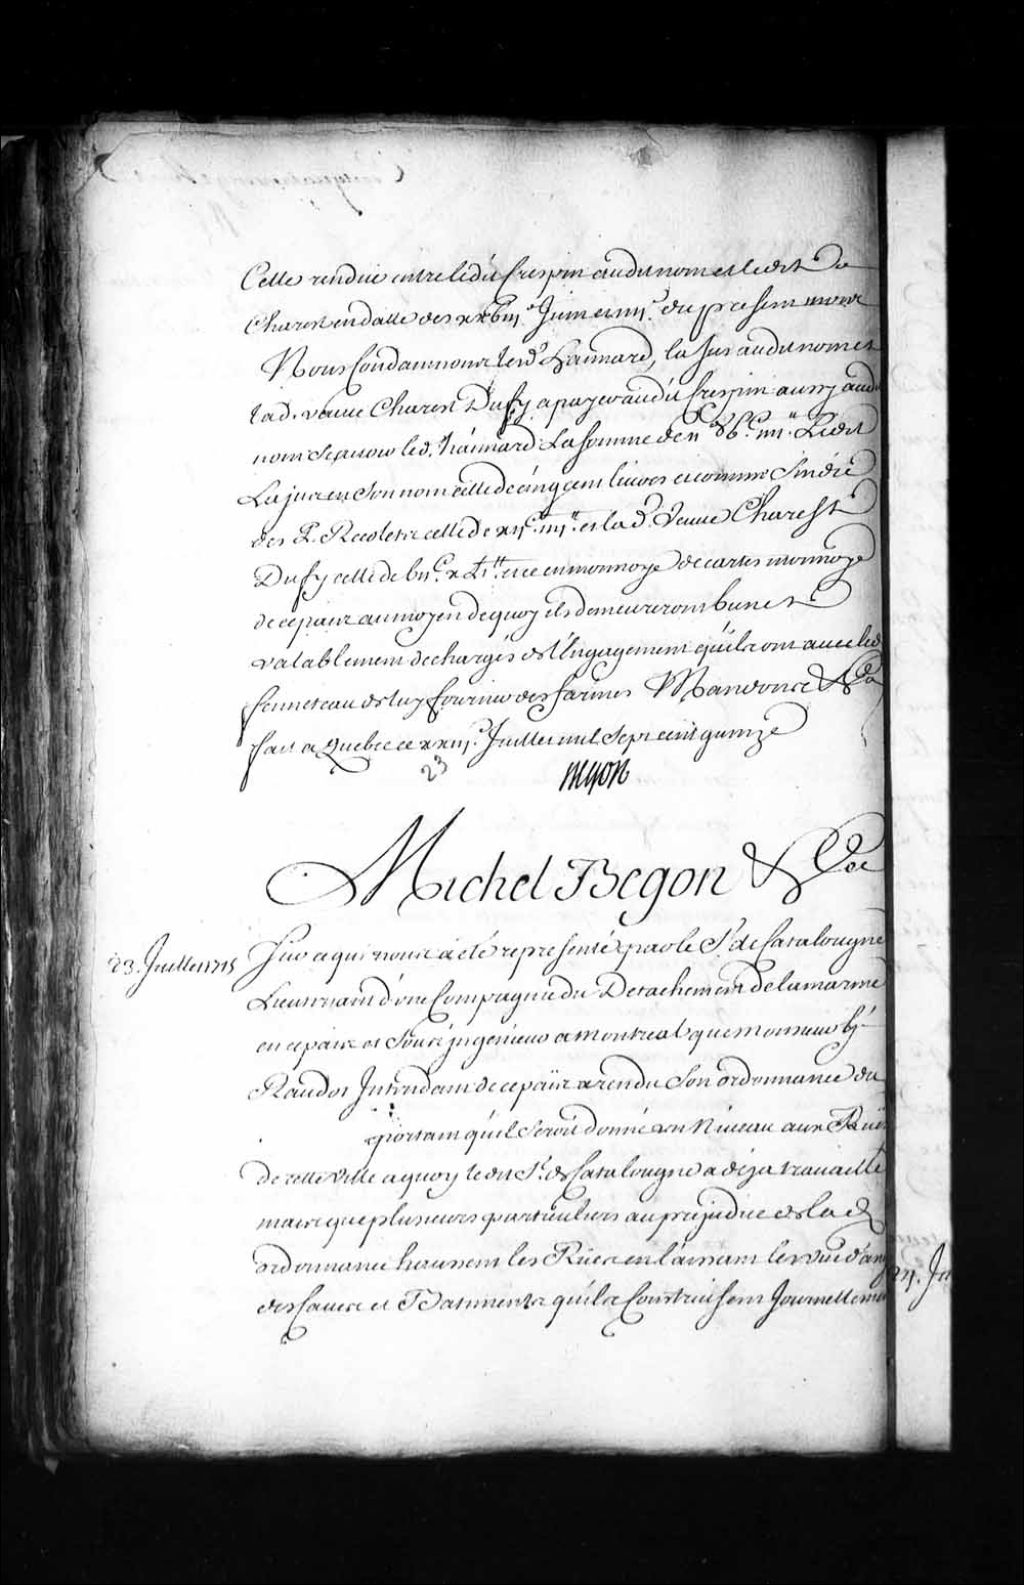 Celle rendue entre ledit Crespin audit nom et ledit
Charest en datte des xxbiij.e Juin et iiij.e du present mois
Nous Condamnons led.s Hainard, La Jus audit nom et
lad. veuve Charest Dufy a payer audit Crespin aussy aud
nom scavoir led. hainard La somme de Ledit
La jus en son nom celle de cinq cens livres et comme Sindic
des P. Recolets celle de et la d.e Veuve Charest
Dufy celle de le tout en monnoye de cartes monnoye
de ce païs au moyen de quoy ils demeureront bien et
valablement dechargés de l'Engagement qu'ils ont avec led
Senneteau de luy fournir des farines Mandons &c.a
fait a Quebec ce xxiij.e Juillet mil Sept cent quinze
23
Begon
Michel Begon &c.a
23. Juillet 1715
Sur ce qui nous a eté representé par le S.r de Catalougne
Lieutenant d'une Compagnie du Detachement de la marine
en ce païs et Sous ingenieur a Montreal que Monsieur
Raudot Intendant de ce païs a rendu Son ordonnance du
portant qu'il Seroit donné un Niveau aux Rües
de cette ville a quoy ledit S.r de Catalougne a deja travaillé
mais que plusieurs particuliers au prejudice de la d
ordonnance haussent les Rües en laissant les vuid'ang
des Caves et Batiments qu'ils Construisent Journellemen
24. Ju